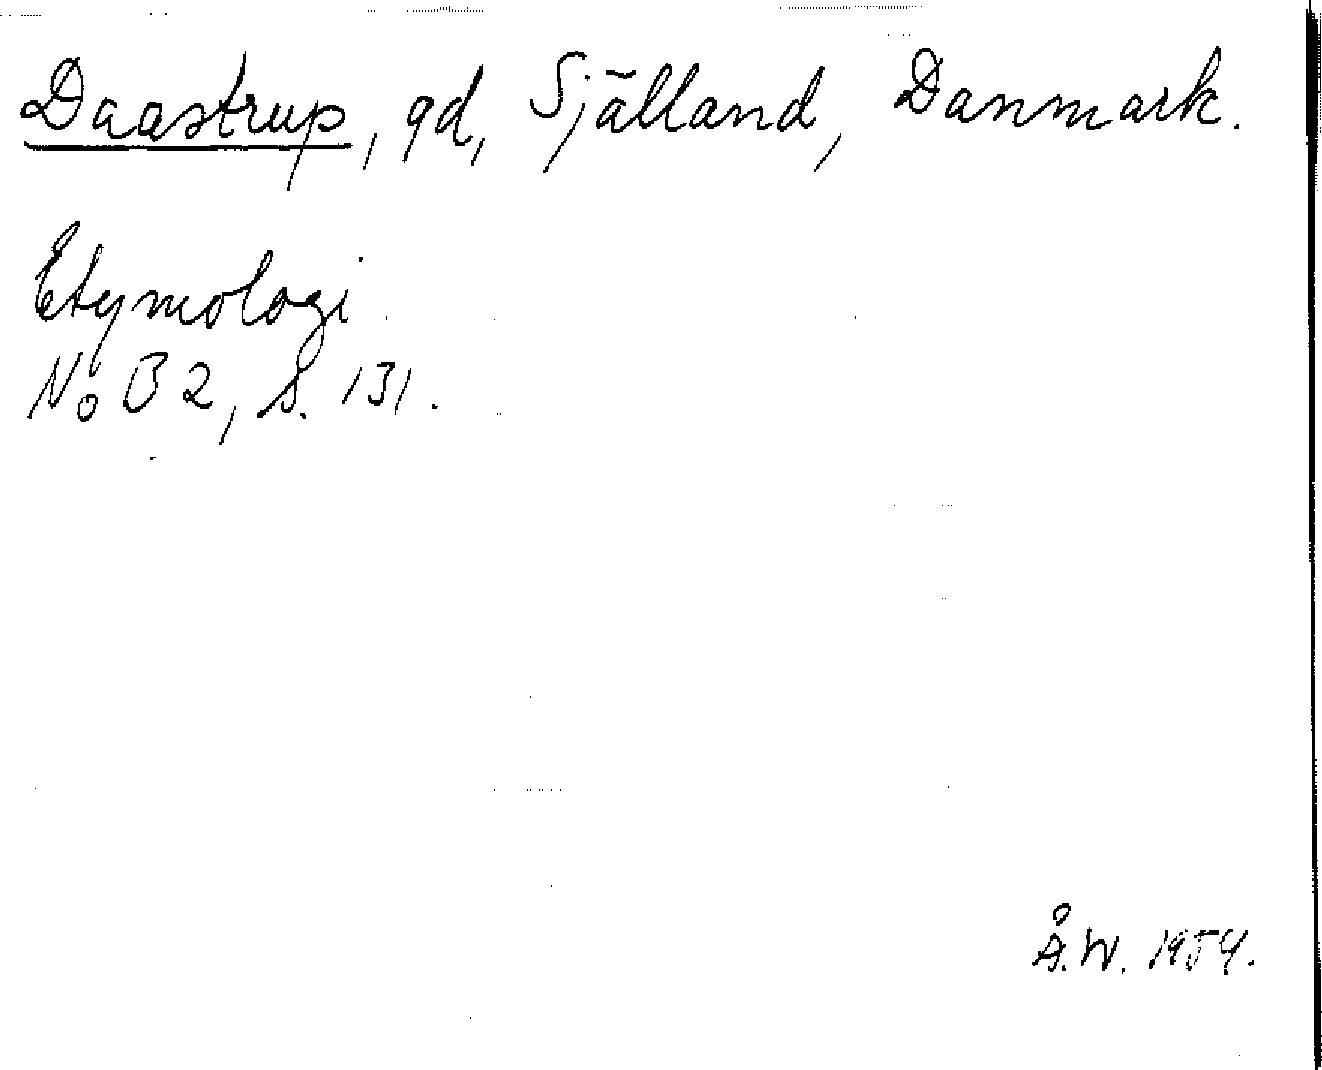 Daastrup, gd, Själland, Danmark.
Etymologi
No B 2, s. 131.
Å.W. 1954.